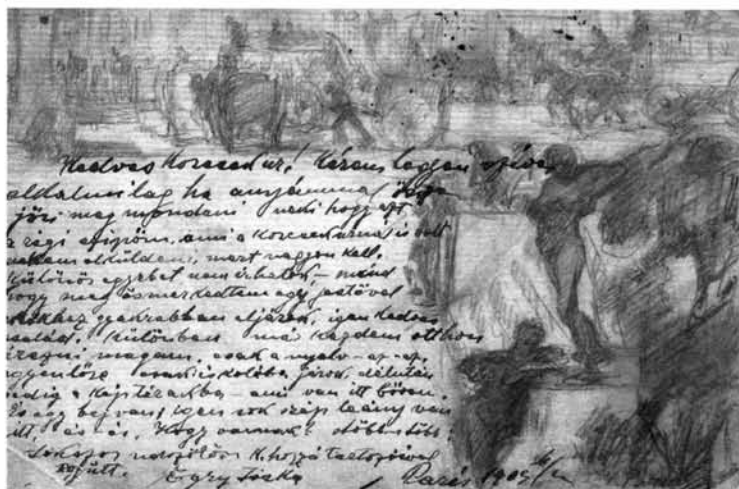 Kedves Korcsek úr! Kérem legyen szíves
aldalmilag ha anyámmal össze
jön megmondani neki hogy azt
a régi cipőm, ami a Korcsek úrnál is volt
nekem elküldeni, mert nagyon kell.
Különös egyebet nem írhatok, – mind
hogy meg ösmerkedtem egy festővel
akikhez gyakrabban eljárok, igen kedves
család. Különben má kezdem otthon
érezni magam, csak a nyelv – az – az.
egyenlőre csak iskolába járok délután
pedig a képtárakba – ami van itt bőven.
És egy baj van, igen sok szép leány van
itt, és – és, Hogy vannak? többi többi
üdvözlöm K. hozzátartozóival
együtt. Egry Jóska Paris 1909